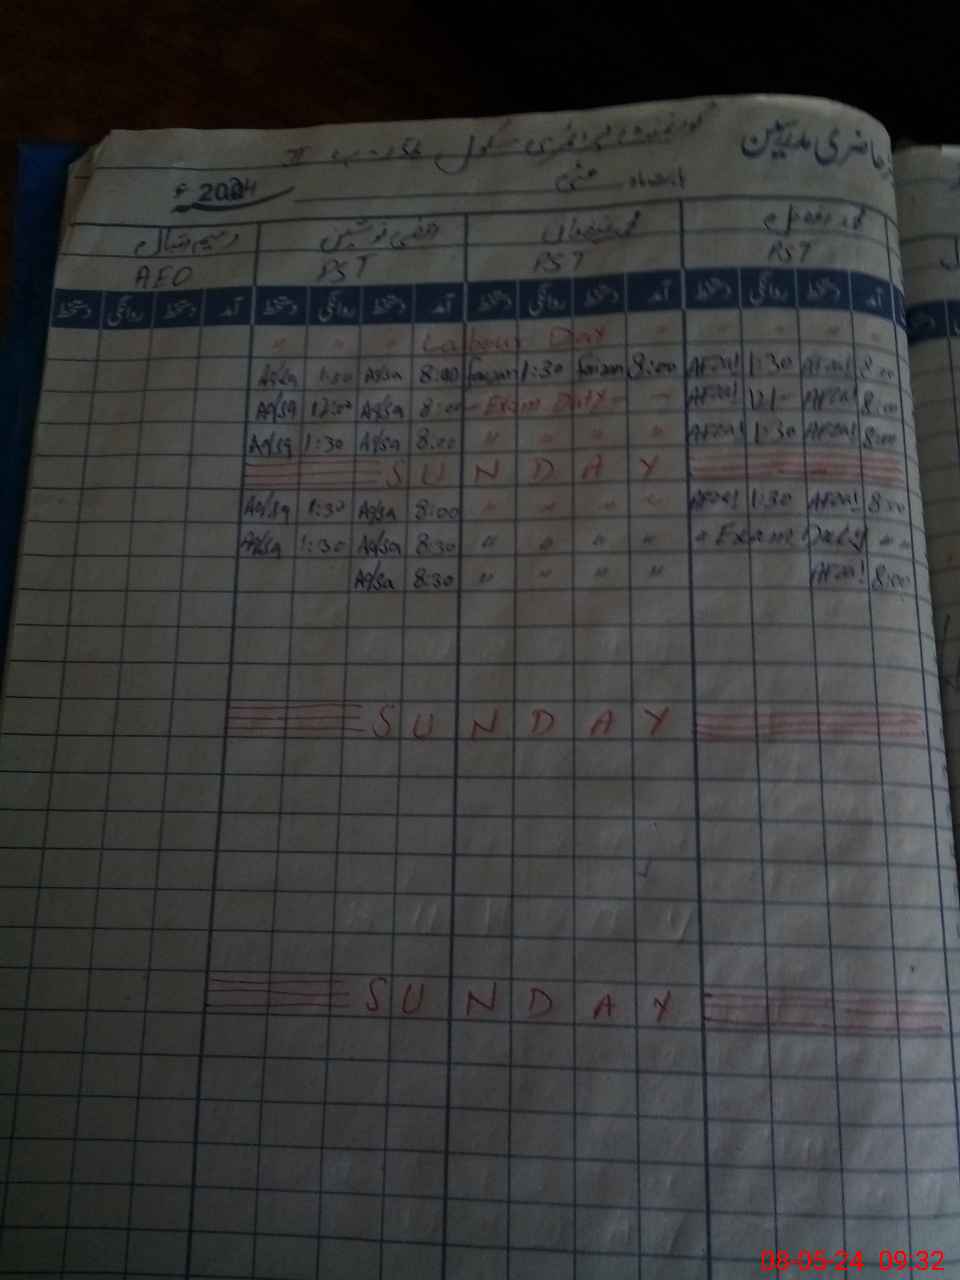 حاضری مدرسین
2024ء
AEO PST PST PST
دستخط روانگی دستخط آمد دستخط روانگی دستخط آمد دستخط روانگی دستخط آمد دستخط روانگی دستخط آمد
" " " Labour Day " " " " "
Aqsa 1:30 Aqsa 8:00 faizan 1:30 faizan 8:00 Afzal 1:30 Afzal 8:00
Aqsa 12:00 Aqsa 8:00 - Exam Duty - - Afzal 12:- Afzal 8:00
Aqsa 1:30 Aqsa 8:00 " " " " Afzal 1:30 Afzal 8:00
SUNDAY
Aqsa 1:30 Aqsa 8:00 " " " " Afzal 1:30 Afzal 8:00
Aqsa 1:30 Aqsa 8:30 " " " " " Exam Duty " "
Aqsa 8:30 " " " " Afzal 8:00
SUNDAY
SUNDAY
08-05-24 09:32